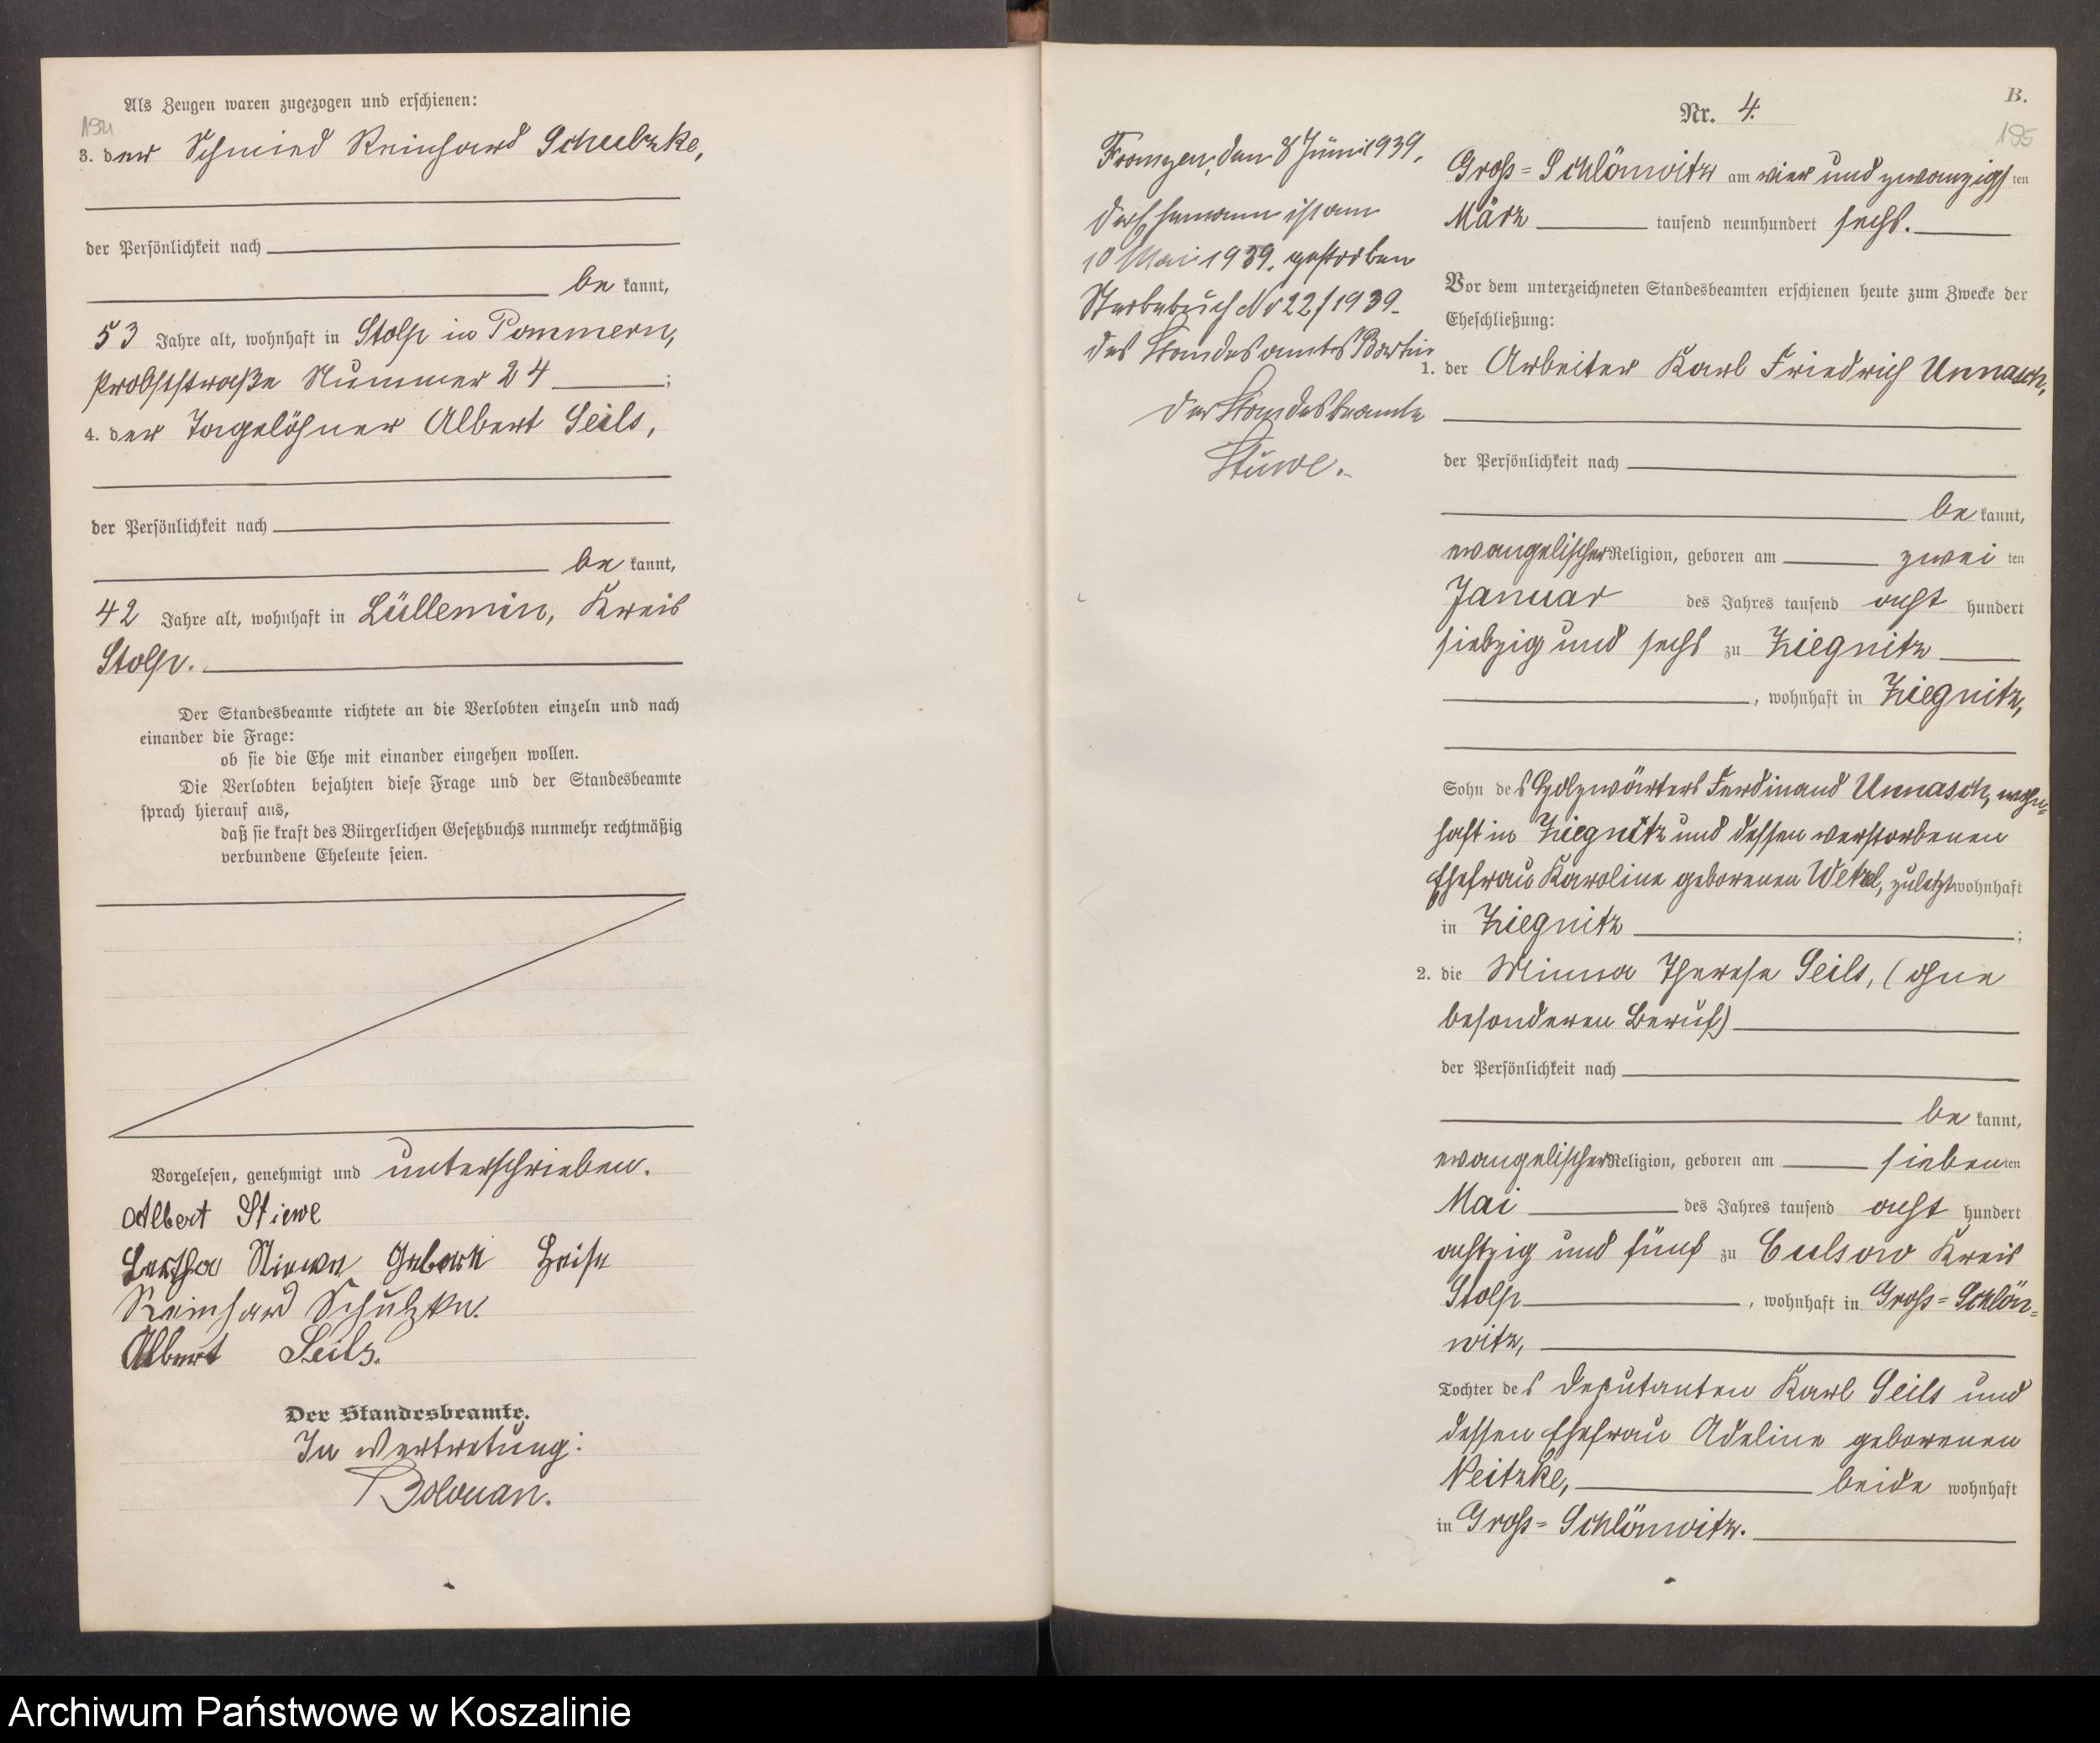 Als Zeugen waren zugezogen und erschienen:
194
3. der Schmied Reinhard Schulzke,
der Persönlichkeit nach
be kannt,
53 Jahre alt, wohnhaft in Stolp in Pommern,
Probststraße Nummer 24 ;
4. der Tagelöhner Albert Seils,
der Persönlichkeit nach
be kannt,
42 Jahre alt, wohnhaft in Lüllemin, Kreis
Stolp.
Der Standesbeamte richtete an die Verlobten einzeln und nach
einander die Frage:
ob sie die Ehe mit einander eingehen wollen.
Die Verlobten bejahten diese Frage und der Standesbeamte
sprach hierauf aus,
daß sie kraft des Bürgerlichen Gesetzbuchs nunmehr rechtmäßig
verbundene Eheleute seien.
Vorgelesen, genehmigt und unterschrieben.
Albert Stiewe
Bertha Stiewe geborn Heise
Reinhard Schulzke.
Albert Seils.
Der Standesbeamte.
In Vertretung:
B.
Nr. 4.
195
Franzen, den 8 Juni 1939.
Der Ehemann ist am
10 Mai 1939. gestorben
Sterbebuch No 22/1939.
des Standesamts
Der Standesbeamte
Stüwe.
Groß=Schlönwitz am vier und zwanzigsten
März tausend neunhundert sechs.
Vor dem unterzeichneten Standesbeamten erschienen heute zum Zwecke der
Eheschließung:
1. der Arbeiter Karl Friedrich Unnasch,
der Persönlichkeit nach
be kannt,
evangelischer Religion, geboren am zwei ten
Januar des Jahres tausend acht hundert
siebzig und sechs zu Ziegnitz
, wohnhaft in Ziegnitz,
Sohn des Holzwärters Ferdinand Unnasch, wohn=
haft in Ziegnitz und dessen verstorbenen
Ehefrau Karoline geborenen Wetzel, zuletzt wohnhaft
in Ziegnitz ;
2. die Minna Therese Seils, (ohne
besonderen Beruf)
der Persönlichkeit nach
be kannt,
evangelischer Religion, geboren am sieben ten
Mai des Jahres tausend acht hundert
achtzig und fünf zu Culsow Kreis
Stolp , wohnhaft in Groß=Schlön=
witz,
Tochter des Deputanten Karl Seils und
dessen Ehefrau Adeline geborenen
Neitzke, beide wohnhaft
in Groß=Schlönwitz.
Archiwum Państwowe w Koszalinie